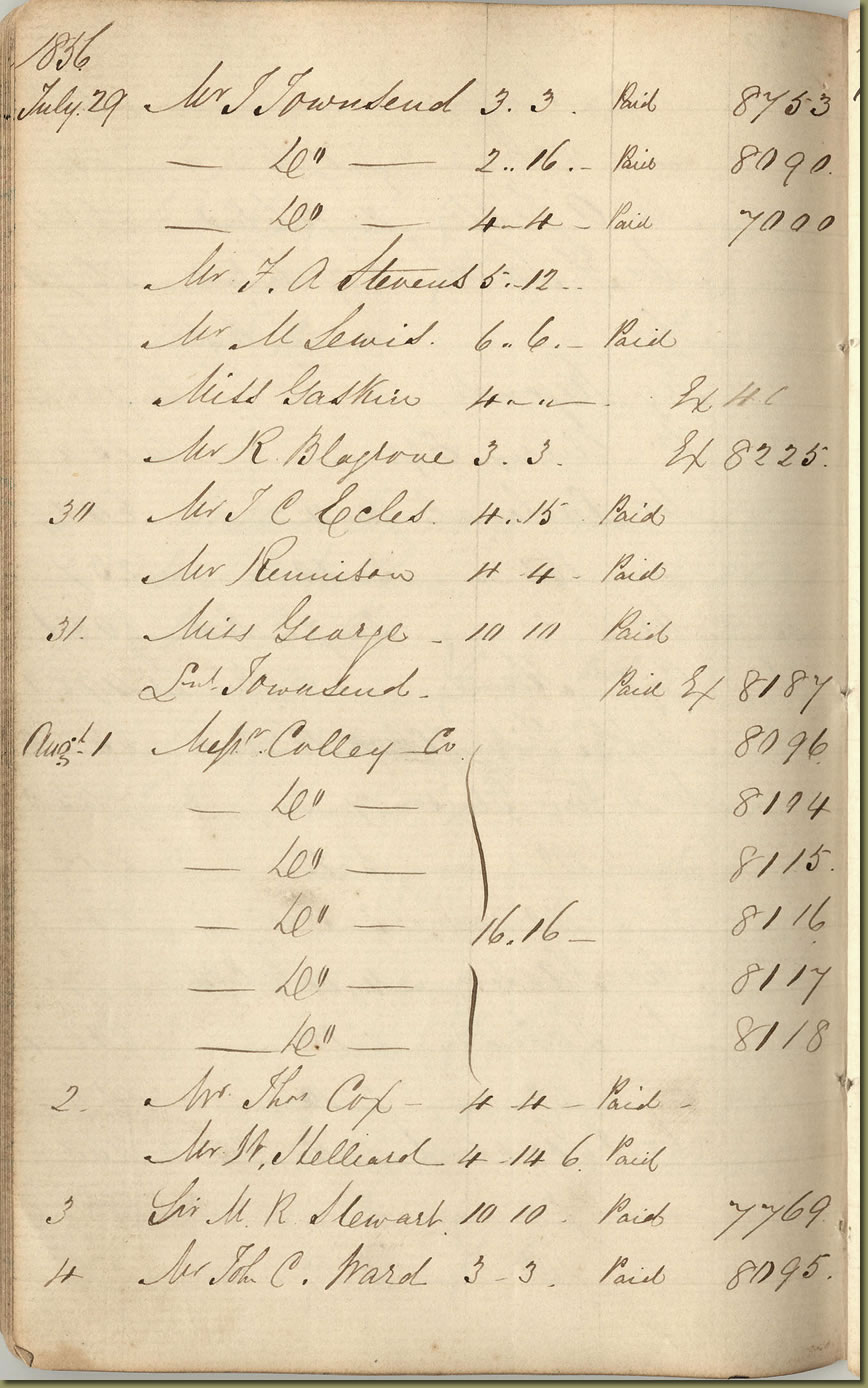 1856
July. 29 Mr J Townsend 3. 3. Paid 8753
— Do — 2.. 16. - Paid 8090.
— Do — 4 - 4 - Paid 7000
Mr. F. A Stevens 5. -12 --
Mr M Lewis. 6.. 6. - Paid
Miss Gaskin 4 - " - Ex
Mr R. Blagrove 3. 3. Ex 8225.
30 Mr J C Eccles. 4.. 15 Paid
Mr Rennison 4 4 - Paid
31. Miss George - 10 10 Paid
Townsend - Paid Ex 8187
Augt. 1 Messrs. Colley Co. 8096
— Do — 8104
— Do — 8115.
— Do — 16. 16 - 8116
— Do — 8117
— Do — 8118
2. Mr. Thos Cox - 4 - 4 - Paid -
Mr W. Helliard 4 - 14 6. Paid
3 Sir M. R Stewart. 10 10. Paid 7769
4 Mr Joh C. Ward 3 - 3. Paid 8095.